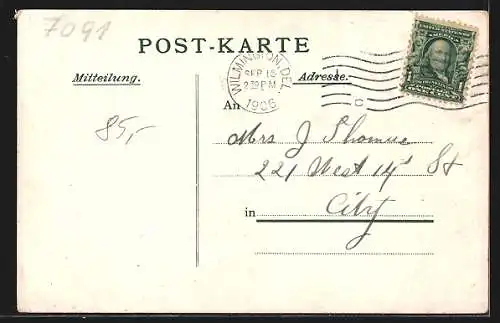 7091
POST-KARTE
Mitteilung.
Adresse.
WILMINGTON, DEL.
SEP 15
2 PM
1906
C
An
85,-
Mrs J Thomas
221 West 14th St
in City